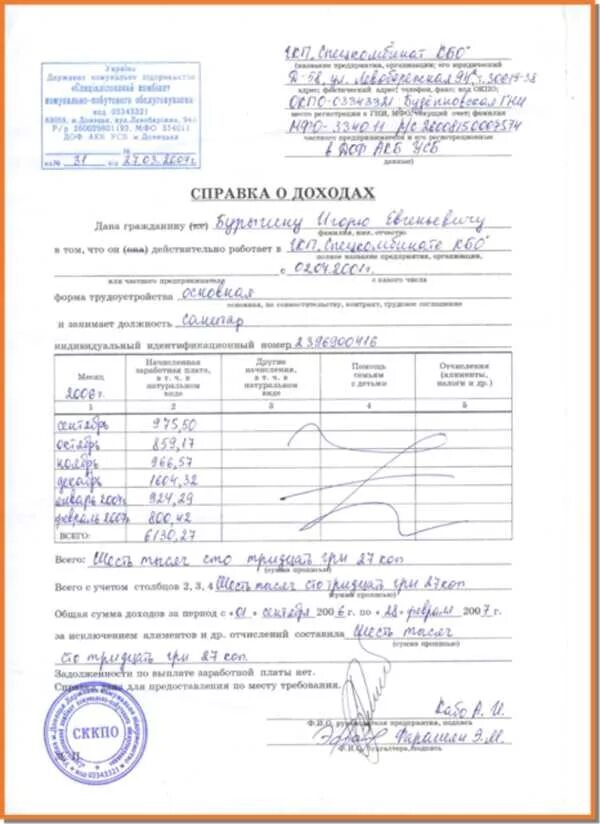 Україна
Державне комунальне підприємство
«Спеціалізований комбінат
комунально-побутового обслуговування»
код 03343321
Р/р 260029801193, МФО 334011
ДОФ АКБ УСБ м Донецьк
№
на № 31 від 27.03.2007г.
ГКП „Спецкомбинат КБО"
(название предприятия, организации; его юридический
Д-58, ул. Левобережная
адрес; фактический адрес; телефон, факс; код ОКПО;
ОКПО-03343321 Буденновская ГНИ
место регистрации в ГНИ, МФО, текущий счет; фамилия
МФО-334011 Р/С 26008150007574
частного предпринимателя и его регистрационные
в ДОФ АКБ УСБ
данные)
СПРАВКА О ДОХОДАХ
Дана гражданину (ке) Бурыгину Игорю Евгеньевичу
фамилия, имя, отчество
в том, что он (она) действительно работает в ГКП „Спецкомбинате КБО"
полное название предприятия, организации,
с 02.04.2001г.
или частного предпринимателя с какого числа
форма трудоустройства основная
основная, по совместительству, контракт, трудовое соглашение
и занимает должность санитар
индивидуальный идентификационный номер 2396900416
Месяц 2006г. Начисленная заработная плата, в т. ч. в натуральном виде Другие начисления, в т. ч. в натуральном виде Помощь семьям с детьми Отчисления (алименты, налоги и др.)
1 2 3 4 5
сентябрь 975,50
октябрь 859,17
ноябрь 966,57
декабрь 1604,32
январь 2007г 924,29
февраль 2007г 800,42
ВСЕГО: 6130,27
Всего: Шесть тысяч сто тридцать грн 27 коп
(сумма прописью)
Всего с учетом столбцов 2, 3, 4 Шесть тысяч сто тридцать грн 27 коп
(сумма прописью)
Общая сумма доходов за период с «01» сентября 2006 г. по «28» февраля 2007 г.
за исключением алиментов и др. отчислений составила Шесть тысяч
(сумма прописью)
сто тридцать грн 27 коп.
Задолженности по выплате заработной платы нет.
Справка дана для предоставления по месту требования.
СККПО
код 03343321
Кабо А. И.
Ф.И.О. руководителя предприятия, подпись
Э.М.
Ф.И.О. бухгалтера, подпись